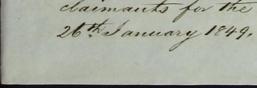 claimants for the
26th January 1849.